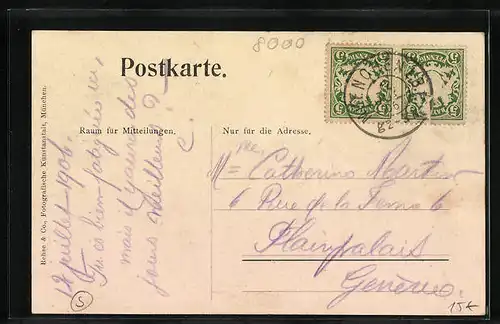 8000
Postkarte.
Raum für Mitteilungen.
Nur für die Adresse.
12 juillet - 1906.
Tu es bien fatiguée
mais il y aura des
jours meilleurs ?
C.
Mlle Catherine Martin
6 Rue de la 6
Plainpalais
Genève
Behse & Co., Fotografische Kunstanstalt, München.
S
15€